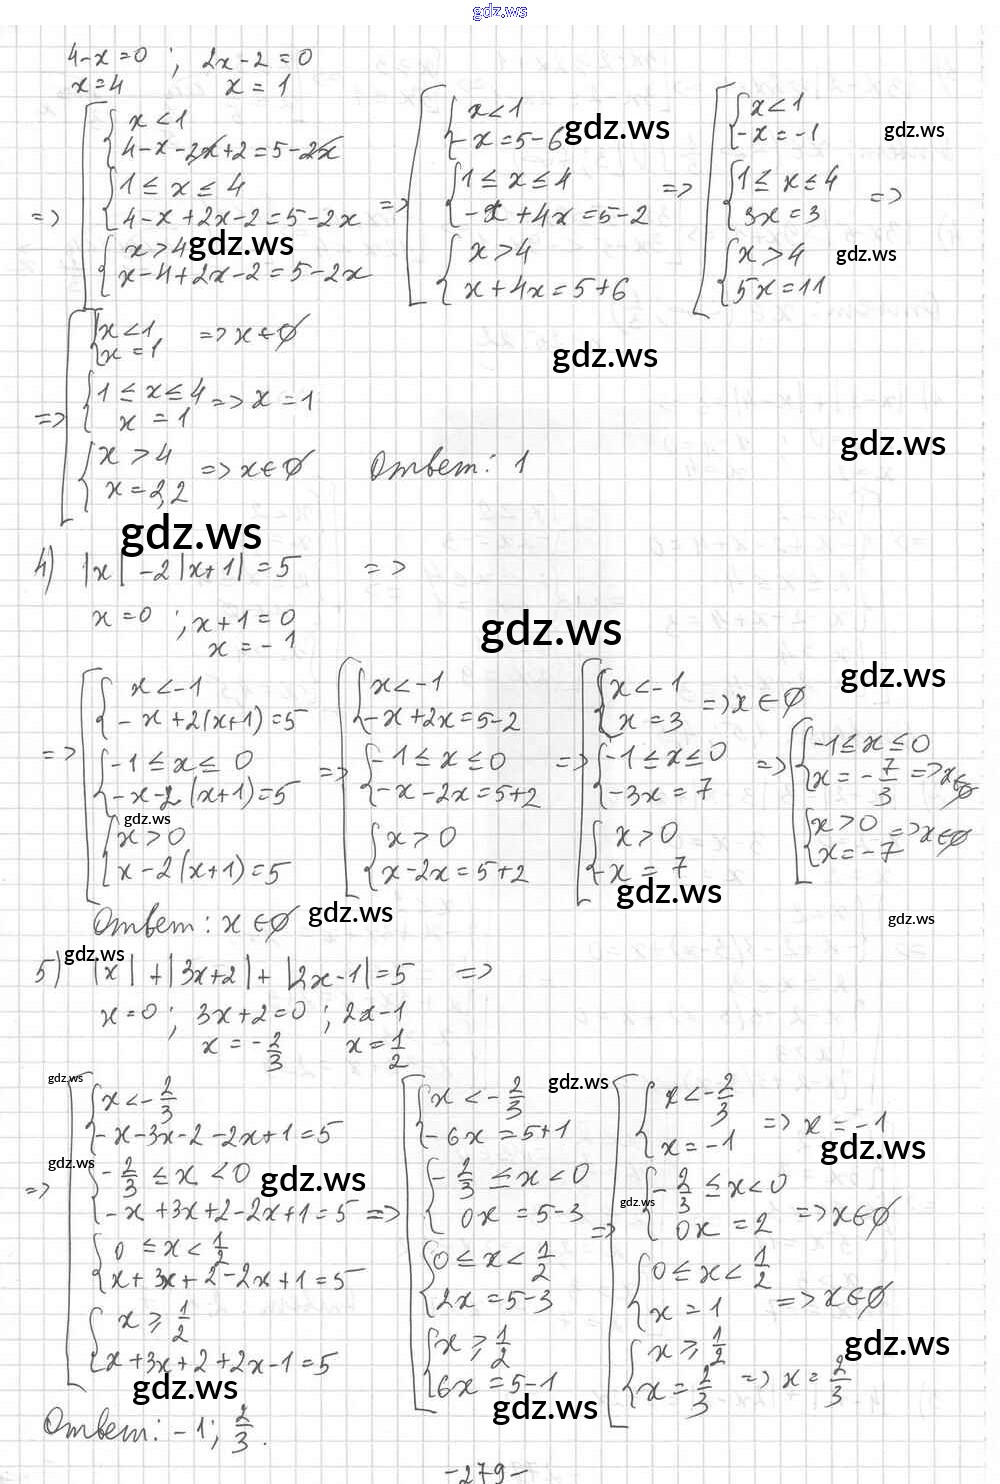 gdz.ws
4-x=0 ; 2x-2=0
x=4 x=1
=> [ { x<1
4-x-2x+2=5-2x
{ 1≤x≤4
4-x+2x-2=5-2x
{ x>4
x-4+2x-2=5-2x
=> [ { x<1
-x=5-6
{ 1≤x≤4
-x+4x=5-2
{ x>4
x+4x=5+6
=> [ { x<1
-x=-1
{ 1≤x≤4
3x=3
{ x>4
5x=11
=>
gdz.ws
gdz.ws
gdz.ws
gdz.ws
=> [ { x<1
x=1 => x∈∅
{ 1≤x≤4
x=1 => x=1
{ x>4
x=2,2 => x∈∅
Ответ: 1
gdz.ws
gdz.ws
gdz.ws
4) |x|-2|x+1|=5 =>
x=0 ; x+1=0
x=-1
gdz.ws
gdz.ws
=> [ { x<-1
-x+2(x+1)=5
{ -1≤x≤0
-x-2(x+1)=5
{ x>0
x-2(x+1)=5
=> [ { x<-1
-x+2x=5-2
{ -1≤x≤0
-x-2x=5+2
{ x>0
x-2x=5+2
=> [ { x<-1
x=3 => x∈∅
{ -1≤x≤0
-3x=7
{ x>0
-x=7
=> [ { -1≤x≤0
x=-7/3 => x∈∅
{ x>0
x=-7 => x∈∅
gdz.ws
gdz.ws
Ответ: x∈∅
gdz.ws
gdz.ws
gdz.ws
5) |x|+|3x+2|+|2x-1|=5 =>
x=0 ; 3x+2=0 ; 2x-1
x=-2/3 x=1/2
gdz.ws
gdz.ws
=> [ { x<-2/3
-x-3x-2-2x+1=5
{ -2/3≤x<0
-x+3x+2-2x+1=5
{ 0≤x<1/2
x+3x+2-2x+1=5
{ x≥1/2
x+3x+2+2x-1=5
=> [ { x<-2/3
-6x=5+1
{ -2/3≤x<0
0x=5-3
{ 0≤x<1/2
2x=5-3
{ x≥1/2
6x=5-1
=> [ { x<-2/3
x=-1 => x=-1
{ -2/3≤x<0
0x=2 => x∈∅
{ 0≤x<1/2
x=1 => x∈∅
{ x≥1/2
x=2/3 => x=2/3
gdz.ws
gdz.ws
gdz.ws
gdz.ws
gdz.ws
gdz.ws
gdz.ws
Ответ: -1; 2/3.
-279-